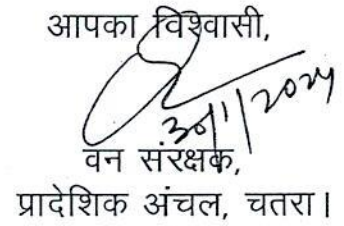 आपका विश्वासी,
30/1/2024
वन संरक्षक,
प्रादेशिक अंचल, चतरा।